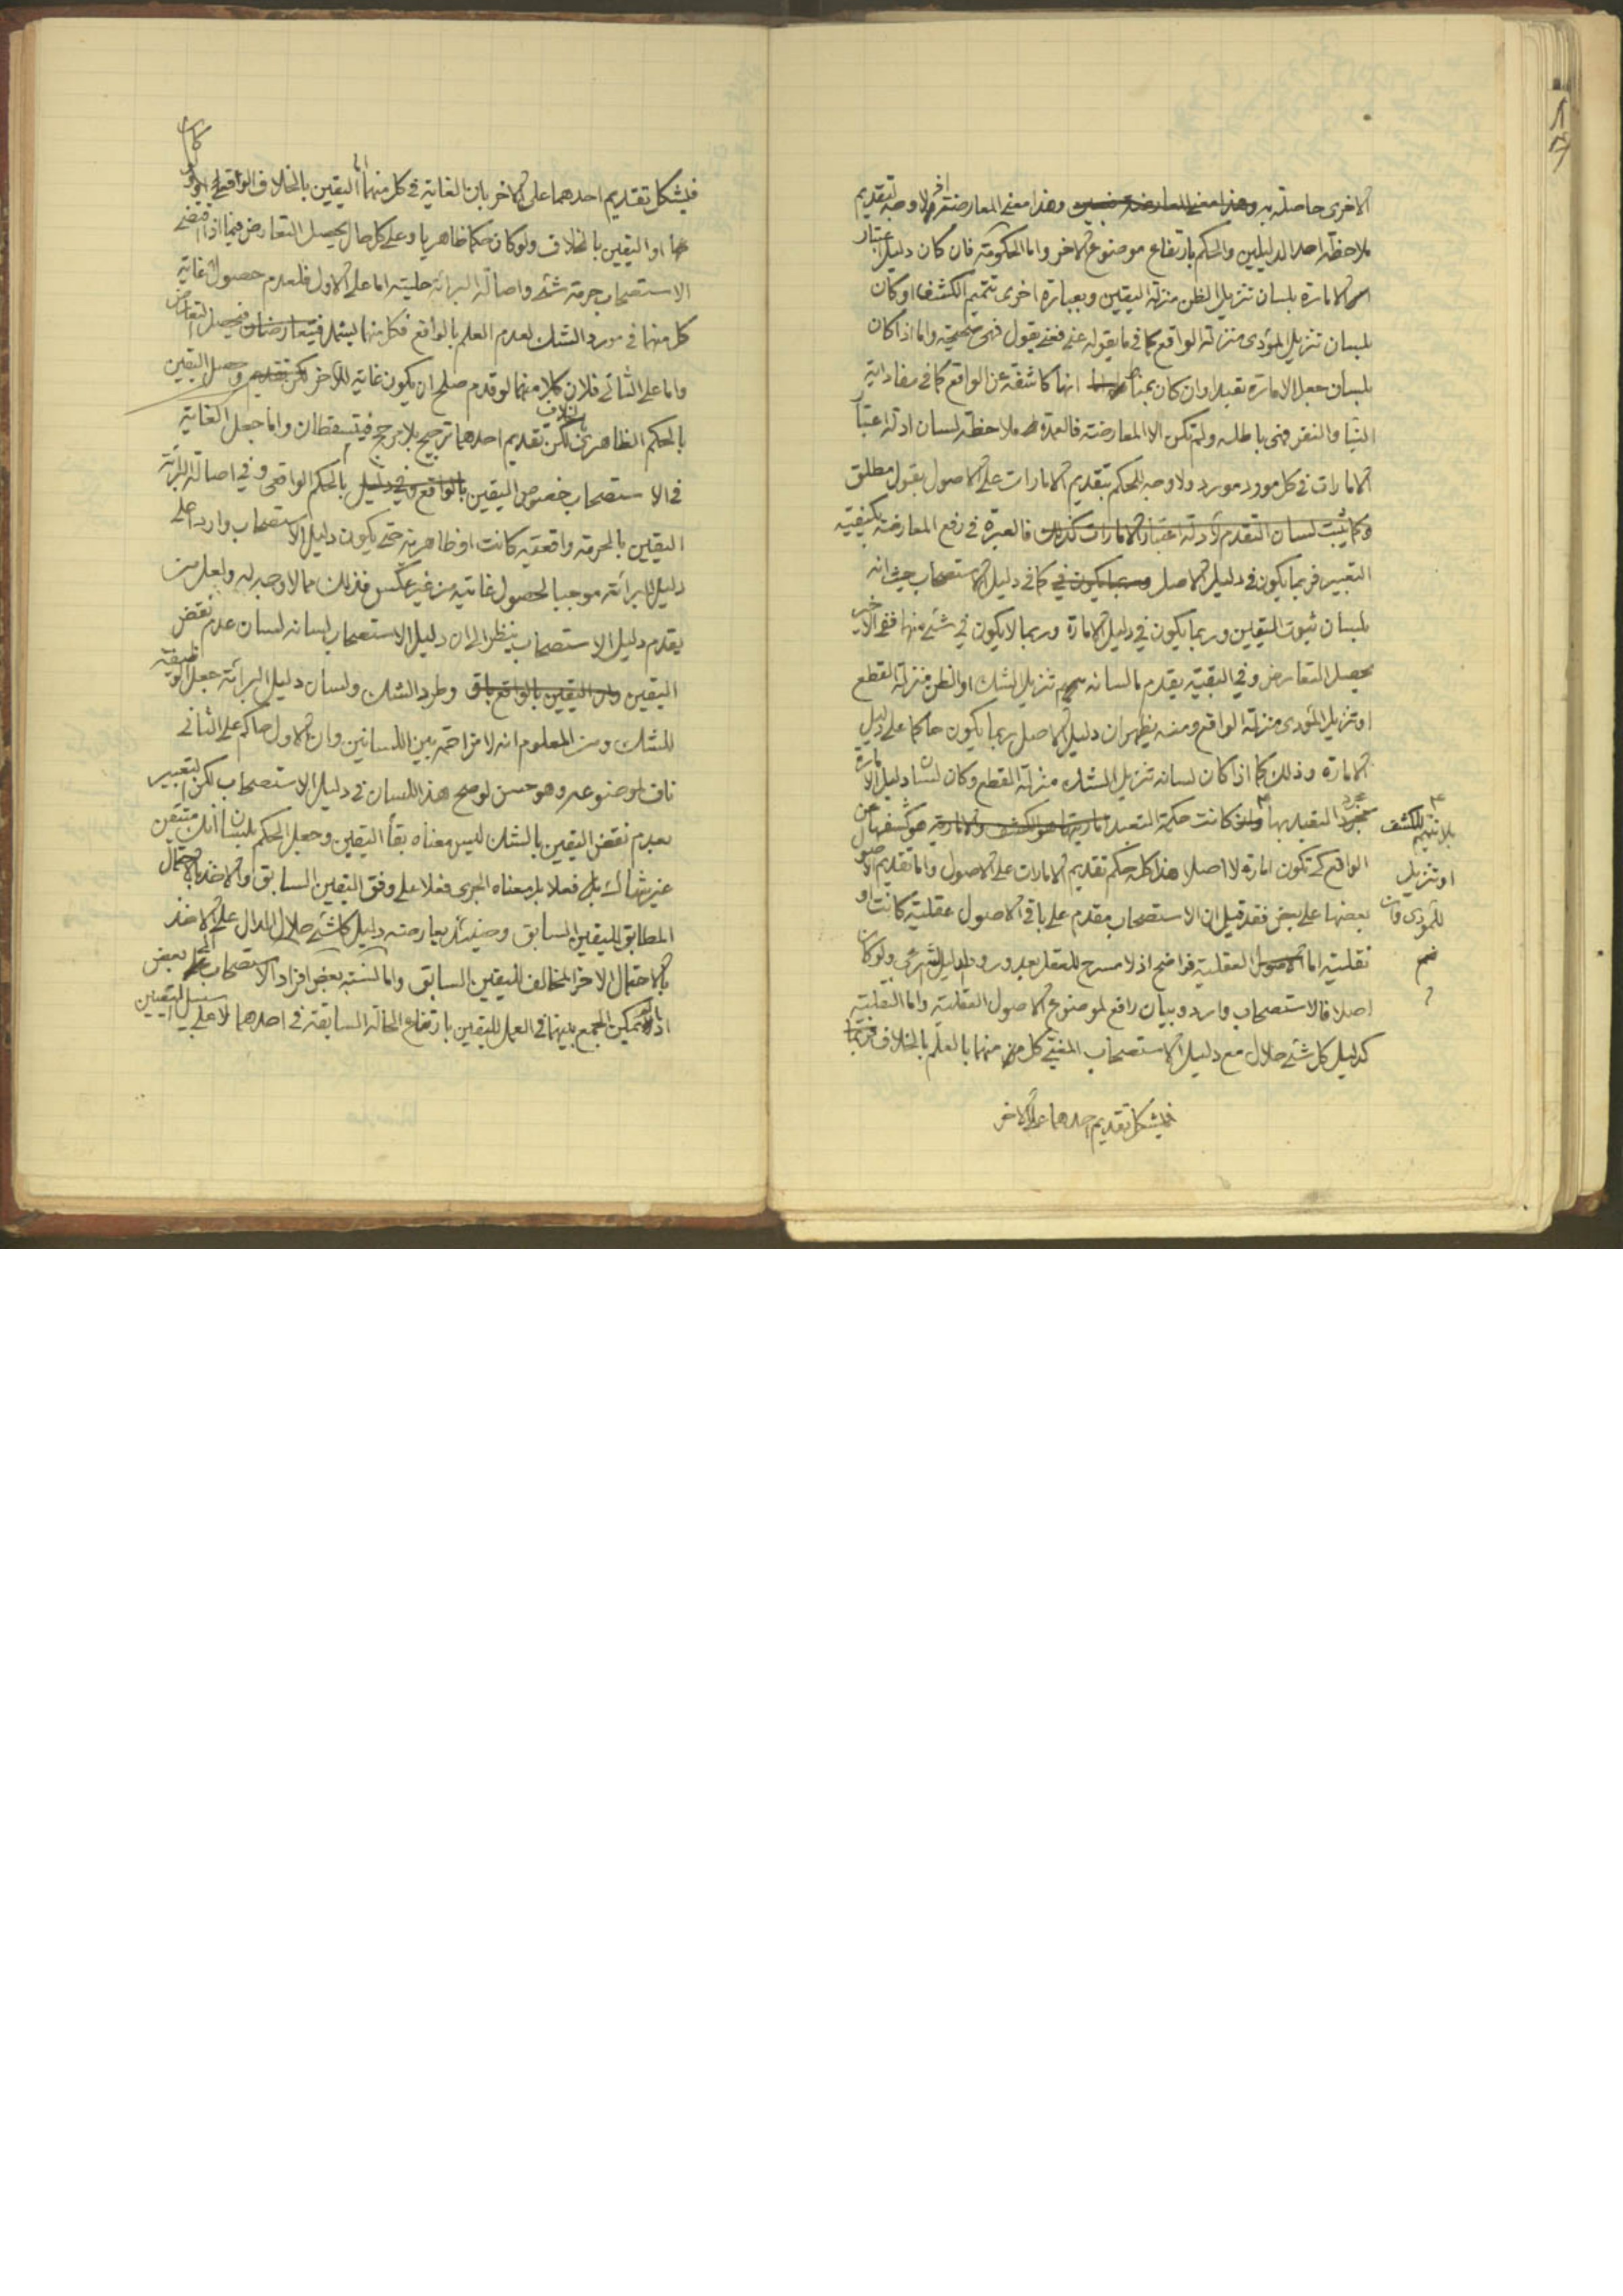 الاخرى حاصلة به وهذا معنى المعارضة وهذا معنى المعارضة ولا وجه لتقديم
ملاحظة احد الدليلين والحكم بارتفاع موضوع الاخر واما الحكومة فان كان دليل اعتبار
الامارة بلسان تنزيل الظن منزلة اليقين وبعبارة اخرى تتميم الكشف او كان
بلسان تنزيل المؤدى منزلة الواقع كما في ما يقوله عني فعني يقول فهي صحيحة واما اذا كان
بلسان جعل الامارة تعبدا وان كان بمناط انها كاشفة عن الواقع كما في مفاد اية
النبأ والنفر فهي باطلة ولم تكن الا المعارضة فالعمدة ملاحظة لسان ادلة اعتبار
الامارات في كل مورد مورد ولا وجه للحكم بتقديم الامارات على الاصول بقول مطلق
وكما يثبت لسان التقدم لادلة اعتبار الامارات كذلك فالعبرة في رفع المعارضة بكيفية
التعبير فربما يكون في دليل الاصل وربما يكون في كما في دليل الاستصحاب حيث انه
بلسان ثبوت اليقين وربما يكون في دليل الامارة وربما لا يكون في شئ منها ففي الاخير
يحصل التعارض وفي البقية يقدم ما لسانه تنزيل الشك او الظن منزلة القطع
او تنزيل المؤدى منزلة الواقع ومنه يظهر ان دليل الاصل ربما يكون حاكما على دليل
الامارة وذلك كما اذا كان لسانه تنزيل الشك منزلة القطع وكان لسان دليل الامارة
مجرد التعبد بها وان كانت حكمة التعبد اماريتها هو الكشف والامارية هو كشفها عن
بلا تتميم للكشف
او تنزيل
للمؤدى
الواقع كي تكون امارة لا اصلا هذا كله حكم تقديم الامارات على الاصول واما تقديم الاصول
بعضها على بعض فقد قيل ان الاستصحاب مقدم على باقي الاصول عقلية كانت او
نقلية اما الاصول العقلية فواضح اذ لا مسرح للعقل بعد ورود الدليل الشرعي ولو كان
اصلا فالاستصحاب وارد وبيان رافع لموضوع الاصول العقلية واما النقلية
كدليل كل شئ حلال مع دليل الاستصحاب المغيى كل منهما بالعلم بالخلاف
فيشكل تقديم احدهما على الاخر
فيشكل تقديم احدهما على الاخر بان الغاية في كل منهما اما اليقين بالخلاف الواقعي
او اليقين بالخلاف ولو كان حكما ظاهريا وعلى كل حال يحصل التعارض فيما اذا اقتضى
الاستصحاب حرمة شئ واصالة البرائة حليته اما على الاول فلعدم حصول غاية
كل منهما في مورد الشك لعدم العلم بالواقع فكل منهما يشمله فيتعارضان فيحصل التعارض
واما على الثاني فلان كلا منهما لو قدم صلح ان يكون غاية للاخر لكن تقديم وحصل اليقين
بالحكم الظاهري بالخلاف لكن تقديم احدهما ترجيح بلا مرجح فيتسقطان واما جعل الغاية
في الاستصحاب خصوص اليقين بالواقع وفي دليل بالحكم الواقعي وفي اصالة البرائة
اليقين بالحرمة واقعية كانت او ظاهرية حتى يكون دليل الاستصحاب واردا على
دليل البرائة موجبا لحصول غايته من غير عكس فذلك مما لا وجه له ولعل من
يقدم دليل الاستصحاب ينظر الى ان دليل الاستصحاب لسانه لسان عدم نقض
اليقين وان اليقين بالواقع باق وطرد الشك ولسان دليل البرائة جعل الوظيفة
للشك ومن المعلوم انه لا مزاحمة بين اللسانين وان الاول حاكم على الثاني
ناف لموضوعه وهو حسن لو صح هذا اللسان في دليل الاستصحاب لكن التعبير
بعدم نقض اليقين بالشك ليس معناه بقاء اليقين وجعل الحكم بلسان انك متيقن
غير شاك بل فعلا بل معناه الجري فعلا على وفق اليقين السابق والاخذ بالاحتمال
المطابق لليقين السابق وحينئذ يعارضه دليل كل شئ حلال الدال على الاخذ
بالاحتمال الاخر المخالف لليقين السابق واما النسبة بعض افراد الاستصحاب الى بعض
اذا لم يمكن الجمع بينهما في العمل لليقين بارتفاع الحالة السابقة في احدهما لا على سبيل التعيين